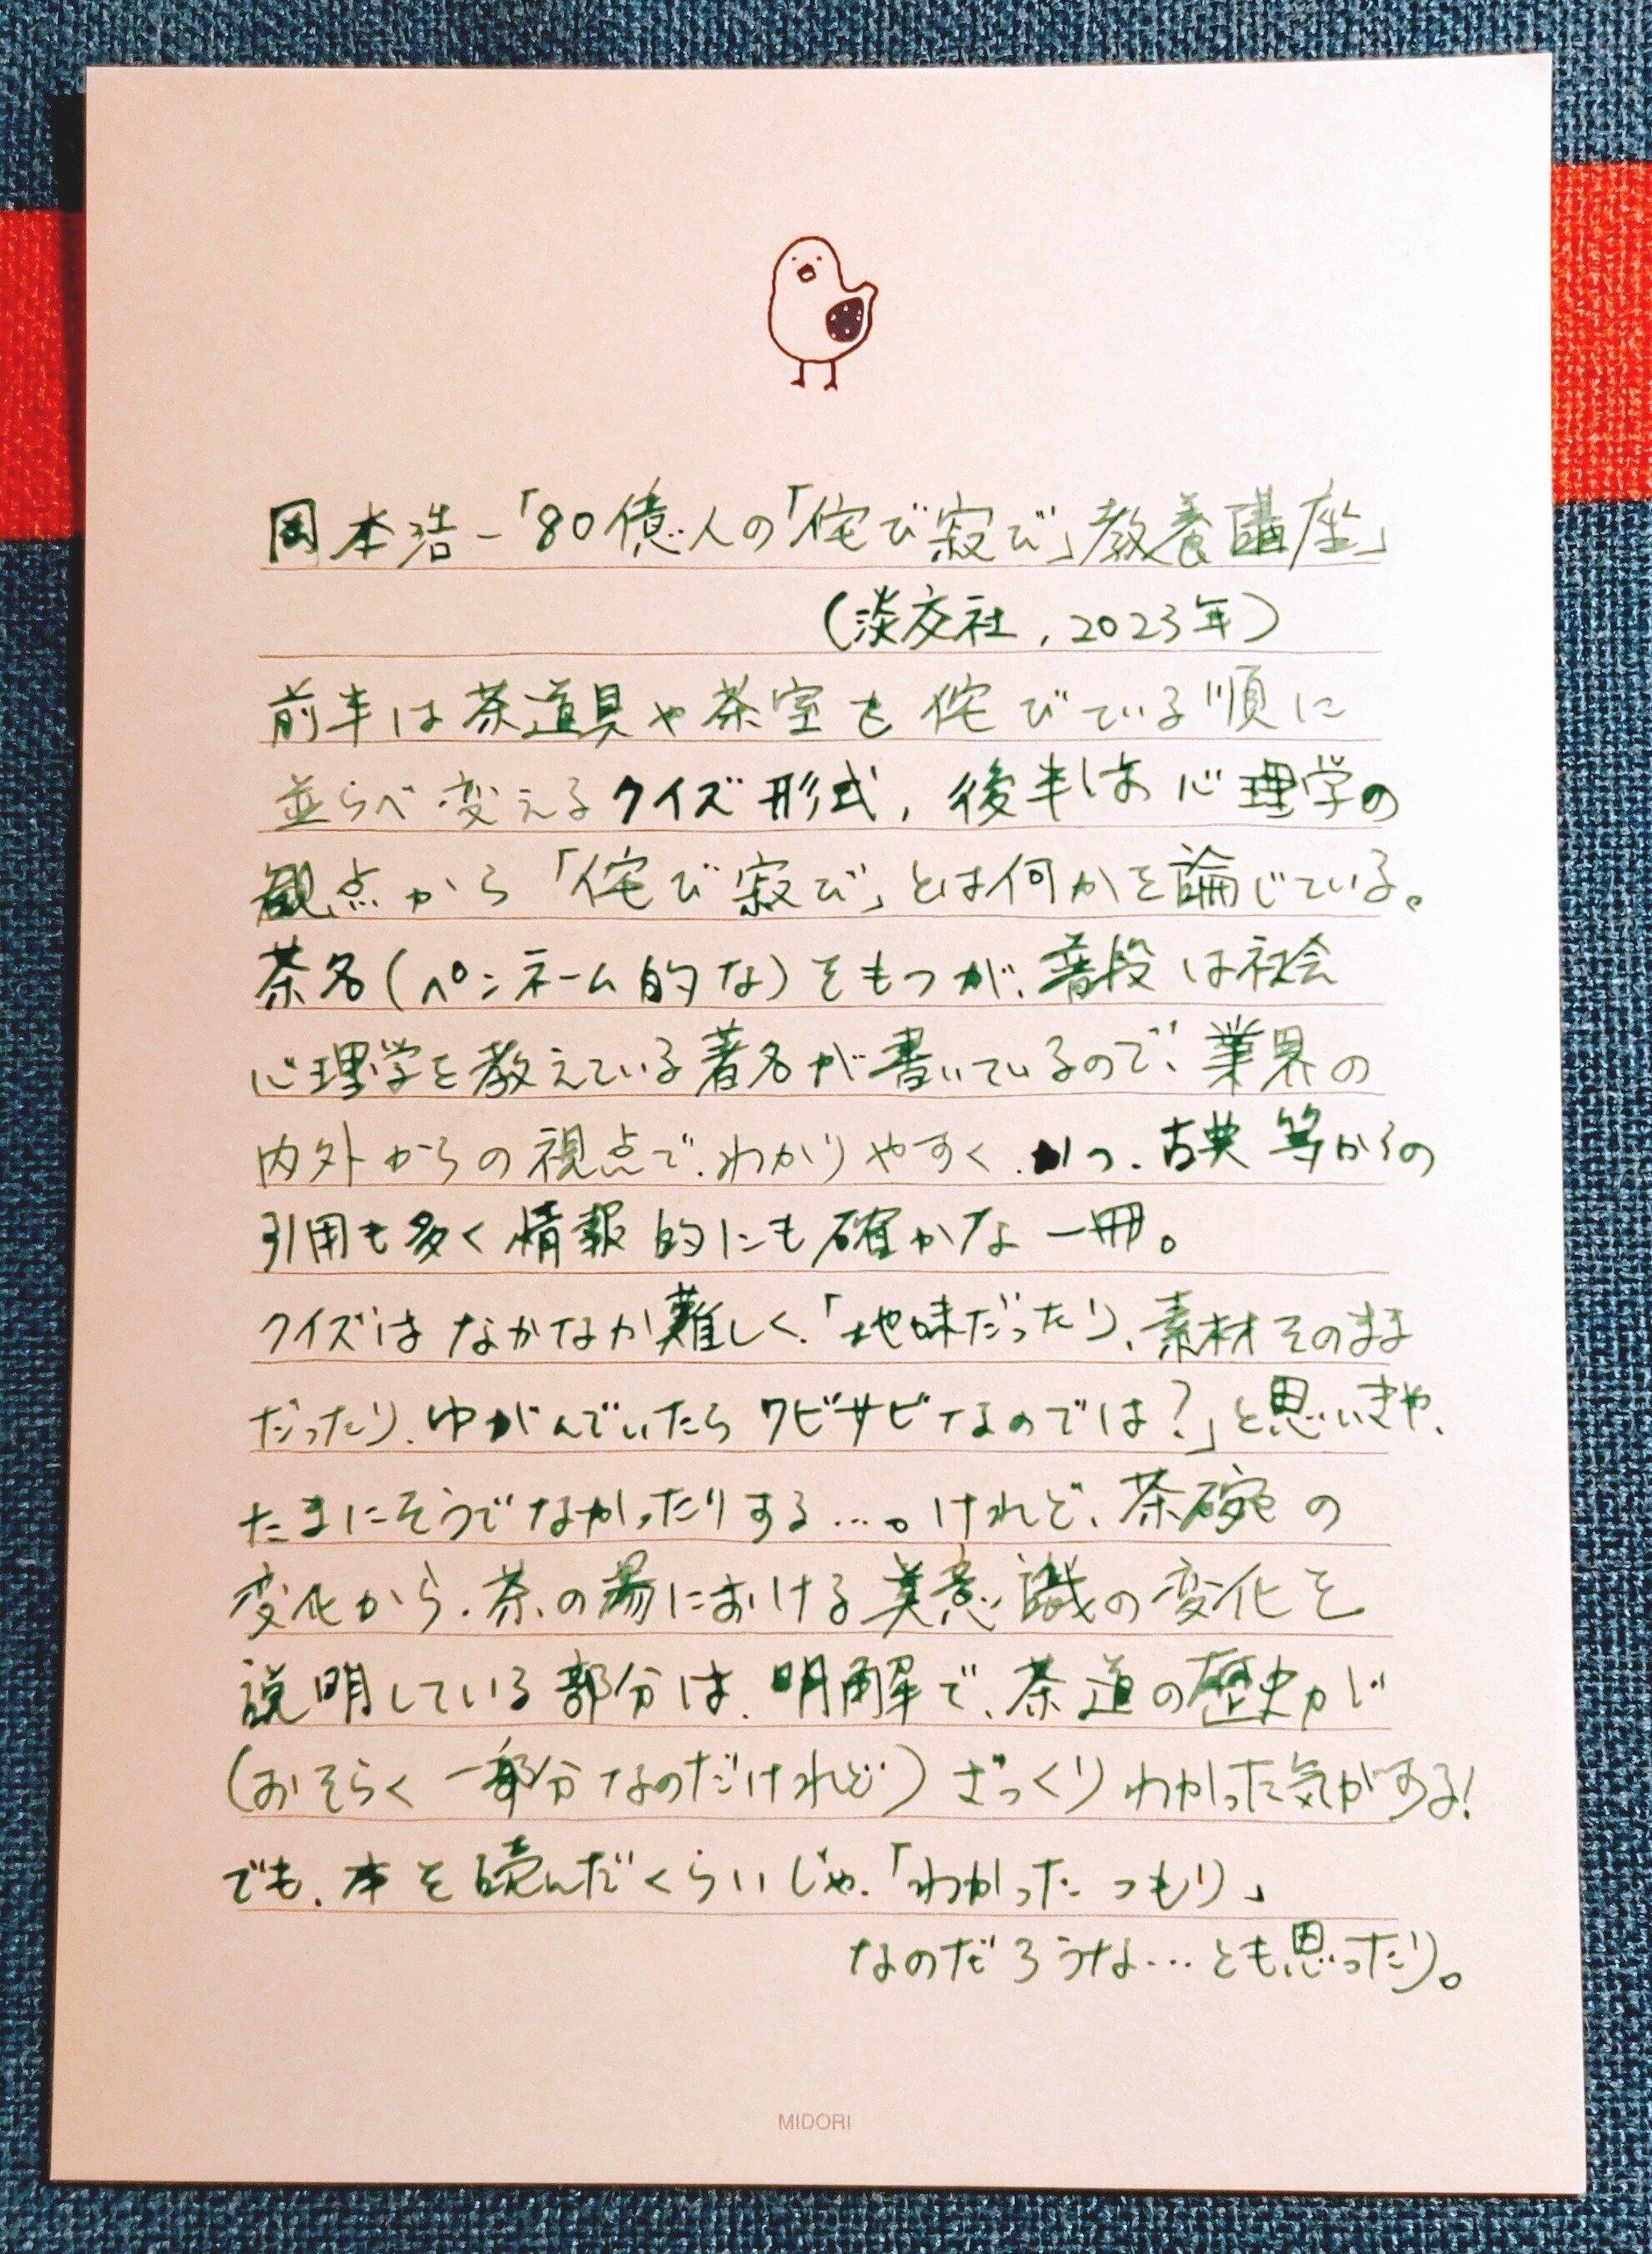 岡本浩一「80億人の「侘び寂び」教養講座」
(淡交社,2023年)
前半は茶道具や茶室を侘びている順に
並らべ変えるクイズ形式,後半は心理学の
観点から「侘び寂び」とは何かを論じている。
茶名(ペンネーム的な)をもつが、普段は社会
心理学を教えている著名が書いているので、業界の
内外からの視点で、わかりやすく、かつ、古典等からの
引用も多く情報的にも確かな一冊。
クイズはなかなか難しく、「地味だったり、素材そのまま
だったり、ゆがんでいたらワビサビなのでは?」と思いきや、
たまにそうでなかったりする…。けれど、茶碗の
変化から、茶の湯における美意識の変化を
説明している部分は、明解で、茶道の歴史が
(おそらく一部分なのだけれど)ざっくりわかった気がする!
でも、本を読んだくらいじゃ、「わかったつもり」
なのだろうな…とも思ったり。
MIDORI